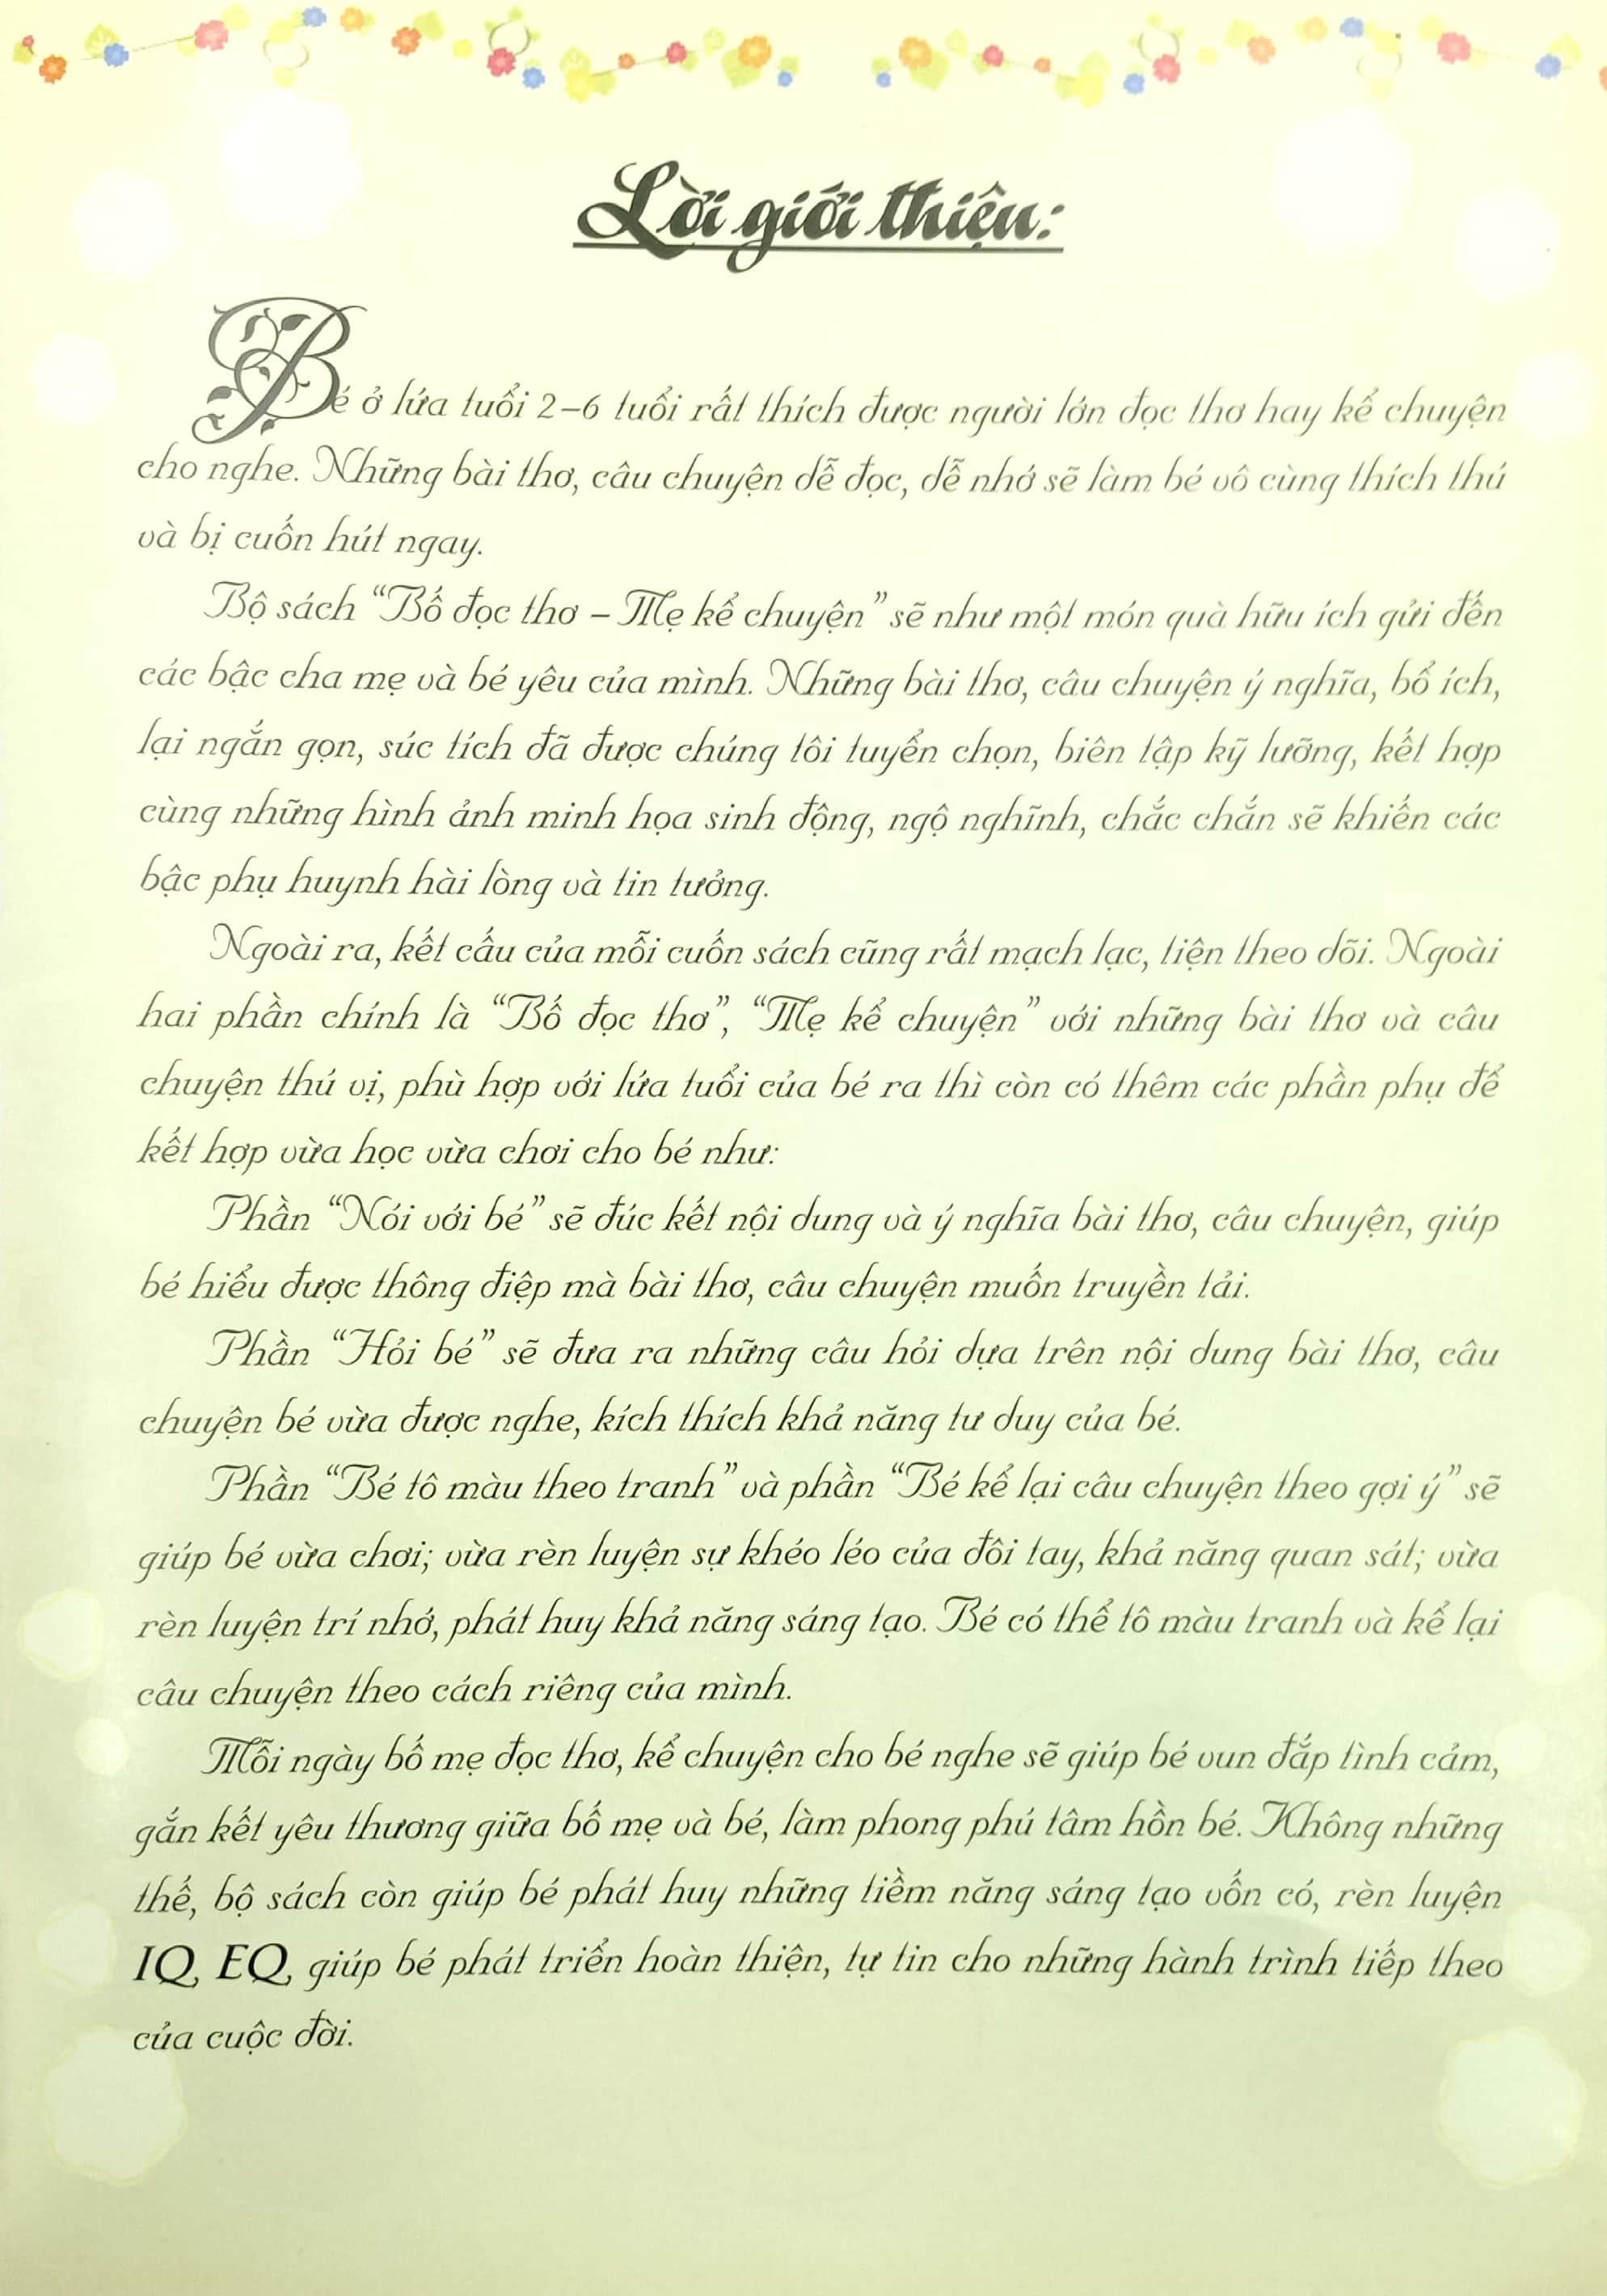 Lời giới thiệu:
Bé ở lứa tuổi 2–6 tuổi rất thích được người lớn đọc thơ hay kể chuyện
cho nghe. Những bài thơ, câu chuyện dễ đọc, dễ nhớ sẽ làm bé vô cùng thích thú
và bị cuốn hút ngay.
Bộ sách “Bố đọc thơ – Mẹ kể chuyện” sẽ như một món quà hữu ích gửi đến
các bậc cha mẹ và bé yêu của mình. Những bài thơ, câu chuyện ý nghĩa, bổ ích,
lại ngắn gọn, súc tích đã được chúng tôi tuyển chọn, biên tập kỹ lưỡng, kết hợp
cùng những hình ảnh minh họa sinh động, ngộ nghĩnh, chắc chắn sẽ khiến các
bậc phụ huynh hài lòng và tin tưởng.
Ngoài ra, kết cấu của mỗi cuốn sách cũng rất mạch lạc, tiện theo dõi. Ngoài
hai phần chính là “Bố đọc thơ”, “Mẹ kể chuyện” với những bài thơ và câu
chuyện thú vị, phù hợp với lứa tuổi của bé ra thì còn có thêm các phần phụ để
kết hợp vừa học vừa chơi cho bé như:
Phần “Nói với bé” sẽ đúc kết nội dung và ý nghĩa bài thơ, câu chuyện, giúp
bé hiểu được thông điệp mà bài thơ, câu chuyện muốn truyền tải.
Phần “Hỏi bé” sẽ đưa ra những câu hỏi dựa trên nội dung bài thơ, câu
chuyện bé vừa được nghe, kích thích khả năng tư duy của bé.
Phần “Bé tô màu theo tranh” và phần “Bé kể lại câu chuyện theo gợi ý” sẽ
giúp bé vừa chơi; vừa rèn luyện sự khéo léo của đôi tay, khả năng quan sát; vừa
rèn luyện trí nhớ, phát huy khả năng sáng tạo. Bé có thể tô màu tranh và kể lại
câu chuyện theo cách riêng của mình.
Mỗi ngày bố mẹ đọc thơ, kể chuyện cho bé nghe sẽ giúp bé vun đắp tình cảm,
gắn kết yêu thương giữa bố mẹ và bé, làm phong phú tâm hồn bé. Không những
thế, bộ sách còn giúp bé phát huy những tiềm năng sáng tạo vốn có, rèn luyện
IQ, EQ, giúp bé phát triển hoàn thiện, tự tin cho những hành trình tiếp theo
của cuộc đời.